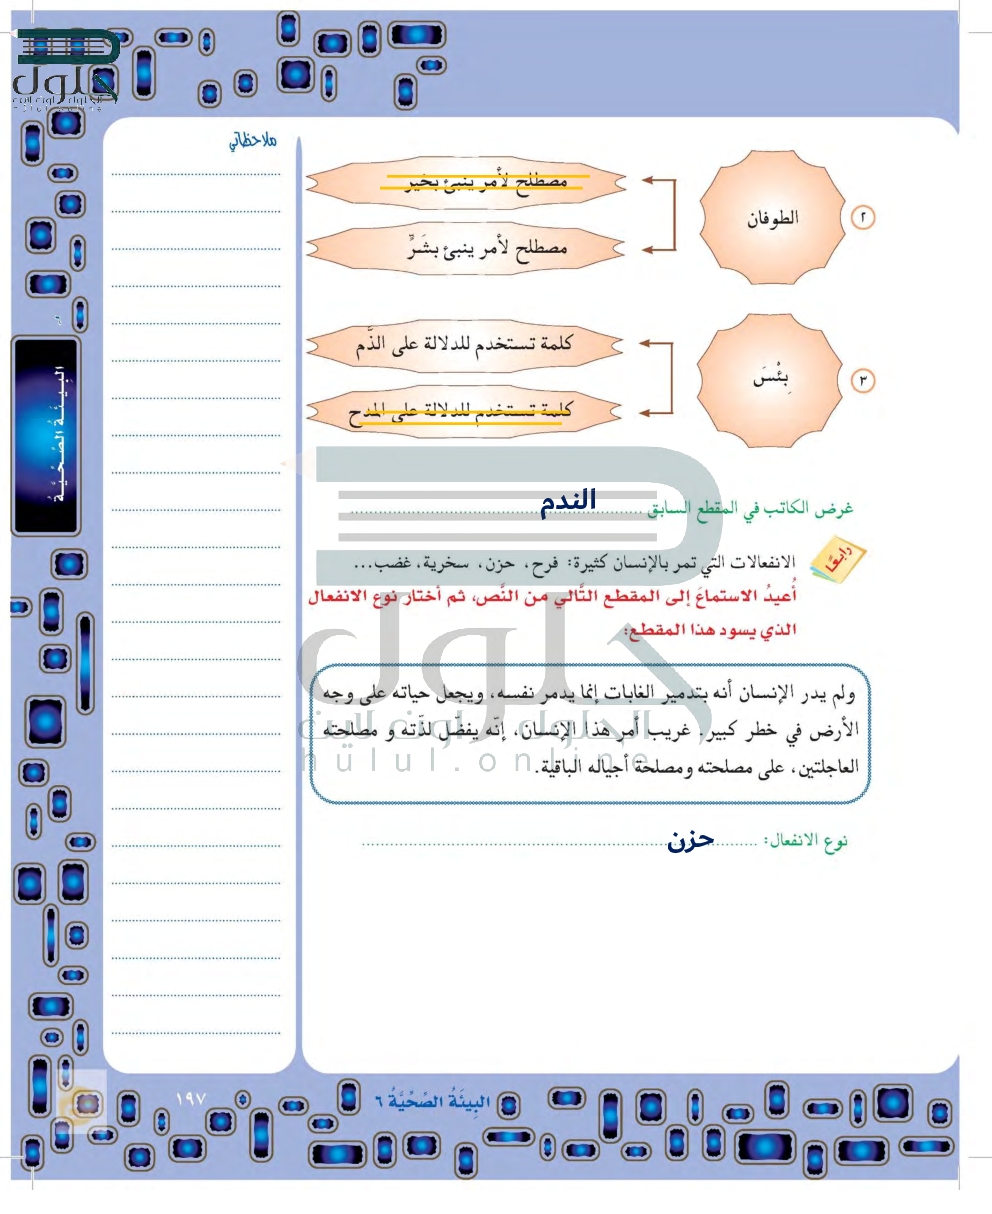 حلول
الحلول اون لاين
hulul.online
ملاحظاتي
٢
الطوفان
مصطلح لأمر ينبئ بخَير
مصطلح لأمر ينبئ بشَرٍّ
٣
بِئْسَ
كلمة تستخدم للدلالة على الذَّم
كلمة تستخدم للدلالة على المدح
البِيئَةُ الصِّحِّيَّةُ
غرض الكاتب في المقطع السابق الندم
رابعًا
الانفعالات التي تمر بالإنسان كثيرة: فرح، حزن، سخرية، غضب...
أُعيدُ الاستماعَ إلى المقطع التَّالي من النَّص، ثم أختار نوع الانفعال
الذي يسود هذا المقطع:
ولم يدر الإنسان أنه بتدمير الغابات إنما يدمر نفسه، ويجعل حياته على وجه
الأرض في خطر كبير. غريب أمر هذا الإنسان، إنّه يفضّل لذّته و مصلحته
العاجلتين، على مصلحته ومصلحة أجياله الباقية.
حلول
الحلول اون لاين
hulul.online
نوع الانفعال: حزن
البِيئَةُ الصِّحِّيَّةُ ٦
١٩٧